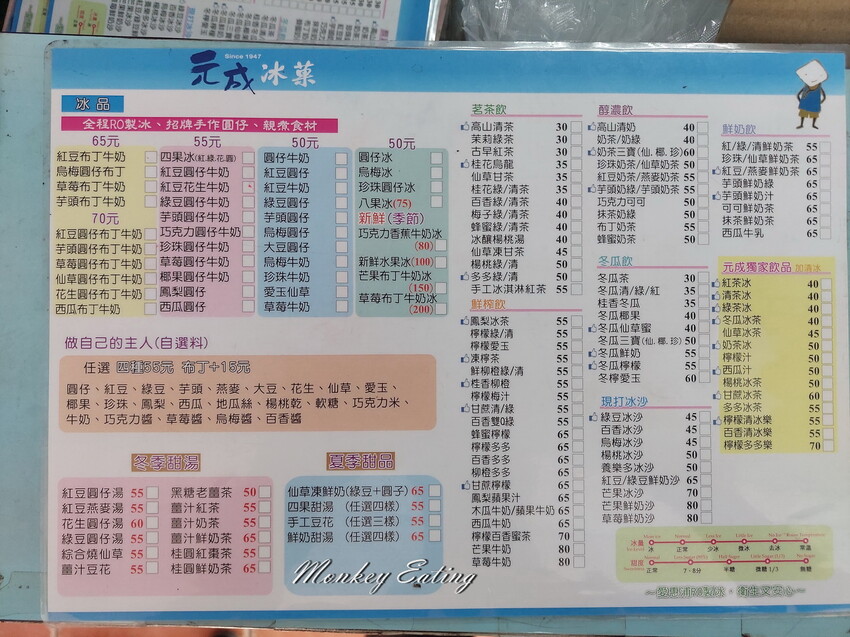 Since 1947
元成冰菓
冰品
全程RO製冰、招牌手作圓仔、親煮食材
65元
紅豆布丁牛奶
烏梅圓仔布丁
草莓布丁牛奶
芋頭布丁牛奶
70元
紅豆圓仔布丁牛奶
芋頭圓仔布丁牛奶
草莓圓仔布丁牛奶
仙草圓仔布丁牛奶
花生圓仔布丁牛奶
西瓜布丁牛奶
55元
四果冰(紅.綠.花.圓)
紅豆圓仔牛奶
紅豆花生牛奶
綠豆圓仔牛奶
芋頭圓仔牛奶
巧克力圓仔牛奶
珍珠圓仔牛奶
草莓圓仔牛奶
椰果圓仔牛奶
鳳梨圓仔
西瓜圓仔
50元
圓仔牛奶
紅豆圓仔
紅豆牛奶
綠豆圓仔
芋頭圓仔
烏梅圓仔
大豆圓仔
烏梅牛奶
珍珠牛奶
愛玉仙草
草莓牛奶
50元
圓仔冰
烏梅冰
珍珠圓仔冰
八果冰(75)
新鮮(季節)
巧克力香蕉牛奶冰
(80)
新鮮水果冰(100)
芒果布丁牛奶冰
(150)
草莓布丁牛奶冰
(200)
做自己的主人(自選料)
任選 四種55元 布丁+15元
圓仔、紅豆、綠豆、芋頭、燕麥、大豆、花生、仙草、愛玉、
椰果、珍珠、鳳梨、西瓜、地瓜絲、楊桃乾、軟糖、巧克力米、
牛奶、巧克力醬、草莓醬、烏梅醬、百香醬
冬季甜湯
紅豆圓仔湯 55
紅豆燕麥湯 55
花生圓仔湯 60
綠豆圓仔湯 55
綜合燒仙草 55
薑汁豆花 55
黑糖老薑茶 50
薑汁紅茶 55
薑汁奶茶 55
薑汁鮮奶茶 65
桂圓紅棗茶 55
桂圓鮮奶茶 65
夏季甜品
仙草凍鮮奶(綠豆+圓子) 65
四果甜湯 (任選四樣) 55
手工豆花 (任選三樣) 55
鮮奶甜湯 (任選四樣) 65
茗茶飲
高山清茶 30
茉莉綠茶 30
古早紅茶 30
桂花烏龍 35
仙草甘茶 35
桂花綠/清茶 35
百香綠/清茶 40
梅子綠/清茶 40
蜂蜜綠/清茶 40
冰釀楊桃湯 40
仙草凍甘茶 45
楊桃綠/清 50
多多綠/清 50
手工冰淇淋紅茶 55
鮮榨飲
鳳梨冰茶 55
檸檬綠/清 55
檸檬愛玉 55
凍檸茶 55
鮮柳橙綠/清 55
桂香柳橙 55
檸檬梅汁 55
甘蔗清/綠 55
百香雙Q綠 55
蜂蜜檸檬 65
檸檬多多 65
百香多多 65
柳橙多多 65
甘蔗檸檬 65
鳳梨蘋果汁 65
木瓜牛奶/蘋果牛奶 65
西瓜牛奶 65
檸檬百香蜜茶 70
芒果牛奶 80
草莓牛奶 80
醇濃飲
高山清奶 40
奶茶/奶綠 40
奶茶三寶(仙.椰.珍) 60
珍珠奶茶/仙草奶茶 50
紅豆奶茶/燕麥奶茶 55
芋頭奶綠/芋頭奶茶 55
巧克力可可 50
抹茶奶綠 50
布丁奶茶 55
蜂蜜奶茶 50
冬瓜飲
冬瓜茶 30
冬瓜清/綠/紅 35
桂香冬瓜 35
冬瓜椰果 40
冬瓜仙草蜜 40
冬瓜三寶(仙.椰.珍) 50
冬瓜鮮奶 55
冬瓜檸檬 55
冬檸愛玉 60
現打冰沙
綠豆冰沙 45
百香冰沙 45
烏梅冰沙 45
楊桃冰沙 50
養樂多冰沙 50
紅豆/綠豆鮮奶沙 65
芒果冰沙 70
芒果鮮奶沙 80
草莓鮮奶沙 80
鮮奶飲
紅/綠/清鮮奶茶 55
珍珠/仙草鮮奶茶 65
紅豆/燕麥鮮奶茶 65
芋頭鮮奶綠 65
芋頭鮮奶汁 65
可可鮮奶茶 65
抹茶鮮奶茶 65
西瓜牛乳 65
元成獨家飲品 加清冰
紅茶冰 40
清茶冰 40
綠茶冰 40
冬瓜冰茶 40
仙草冰茶 45
奶茶冰 50
檸檬汁 50
西瓜汁 50
楊桃冰茶 50
甘蔗冰茶 60
多多冰茶 55
檸檬清冰樂 55
百香清冰樂 55
檸檬多多樂 70
冰量 冰 正常 少冰 微冰 去冰 常溫
甜度 正常 7-8分 半糖 微糖 1/3 無糖
～愛惠浦RO製冰，衛生又安心～
Monkey Eating